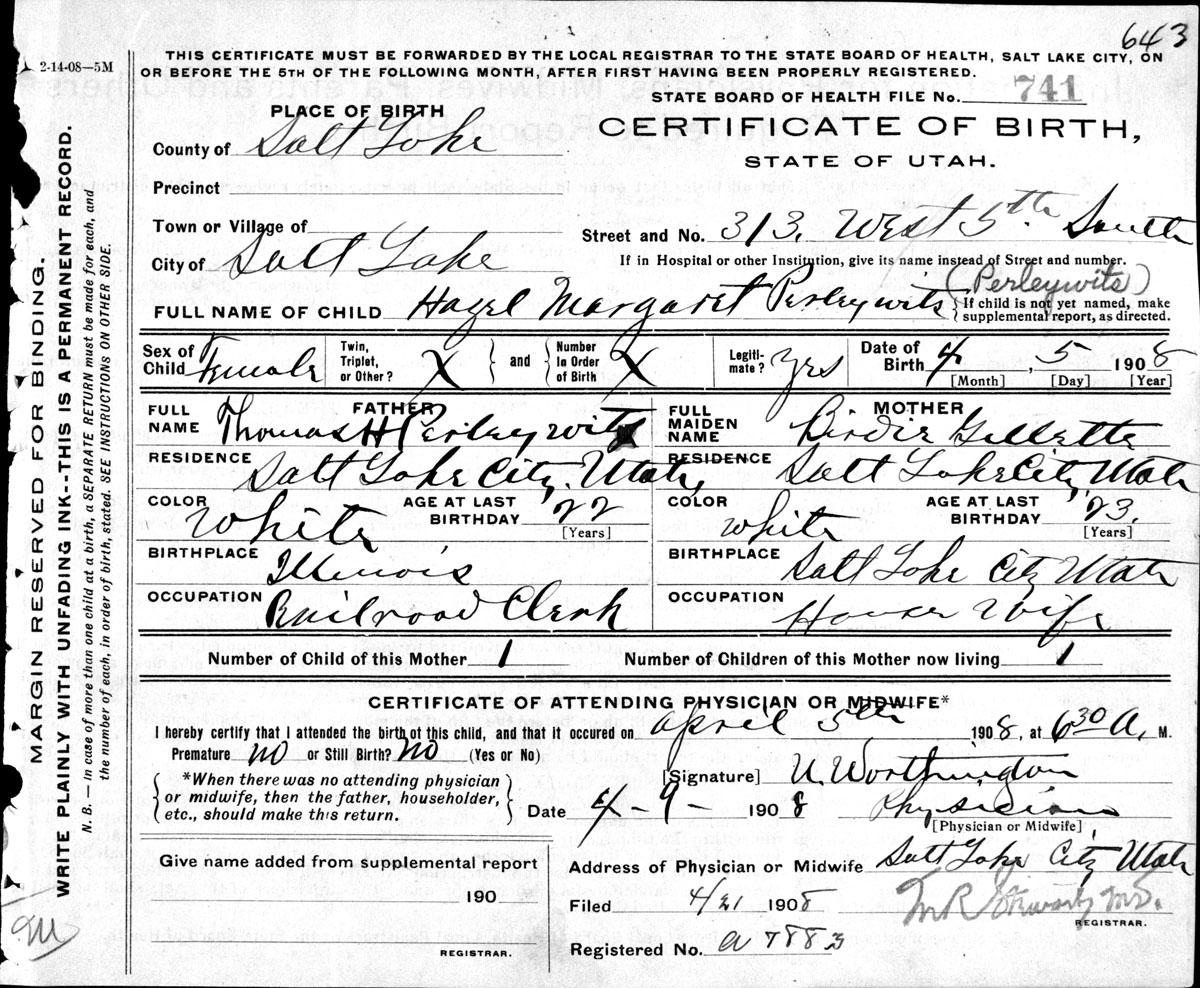 643
2-14-08—5M
THIS CERTIFICATE MUST BE FORWARDED BY THE LOCAL REGISTRAR TO THE STATE BOARD OF HEALTH, SALT LAKE CITY, ON
OR BEFORE THE 5TH OF THE FOLLOWING MONTH, AFTER FIRST HAVING BEEN PROPERLY REGISTERED.
STATE BOARD OF HEALTH FILE No. 741
PLACE OF BIRTH
CERTIFICATE OF BIRTH,
STATE OF UTAH.
County of Salt Lake
Precinct
Town or Village of
Street and No. 313. West 5th South
City of Salt Lake
If in Hospital or other Institution, give its name instead of Street and number.
(Perleywits)
FULL NAME OF CHILD Hazel Margaret Perleywits
If child is not yet named, make
supplemental report, as directed.
Sex of Child Female
Twin, Triplet, or Other? X and Number In Order of Birth X
Legiti-mate? Yes
Date of Birth 4, 5 1908
[Month] [Day] [Year]
FATHER
FULL NAME Thomas H Perleywits
MOTHER
FULL MAIDEN NAME Birdie Gillette
RESIDENCE Salt Lake City, Utah,
RESIDENCE Salt Lake City, Utah
COLOR White AGE AT LAST BIRTHDAY 22 [Years]
COLOR White AGE AT LAST BIRTHDAY 23. [Years]
BIRTHPLACE Illinois
BIRTHPLACE Salt Lake City Utah
OCCUPATION Railroad Clerk
OCCUPATION House Wife
Number of Child of this Mother 1 Number of Children of this Mother now living 1
CERTIFICATE OF ATTENDING PHYSICIAN OR MIDWIFE*
I hereby certify that I attended the birth of this child, and that it occured on April 5th 1908, at 6 30 A. M.
Premature no or Still Birth? no (Yes or No)
*When there was no attending physician
or midwife, then the father, householder,
etc., should make this return.
[Signature] U. Worthington
Date 4-9- 1908 Physician
[Physician or Midwife]
Give name added from supplemental report
190
REGISTRAR.
Address of Physician or Midwife Salt Lake City, Utah
Filed 4/21 1908
REGISTRAR.
Registered No. a 7883
MARGIN RESERVED FOR BINDING.
WRITE PLAINLY WITH UNFADING INK--THIS IS A PERMANENT RECORD.
N. B. — in case of more than one child at a birth, a SEPARATE RETURN must be made for each, and
the number of each, in order of birth, stated. SEE INSTRUCTIONS ON OTHER SIDE.